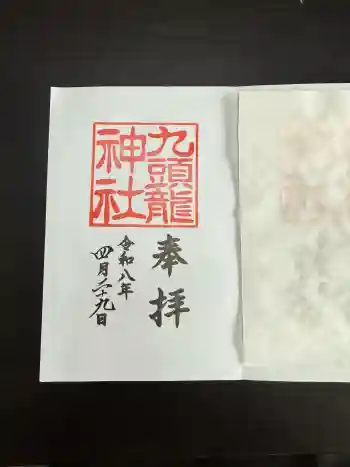 奉拝
九頭龍
神社
令和八年
四月二十九日